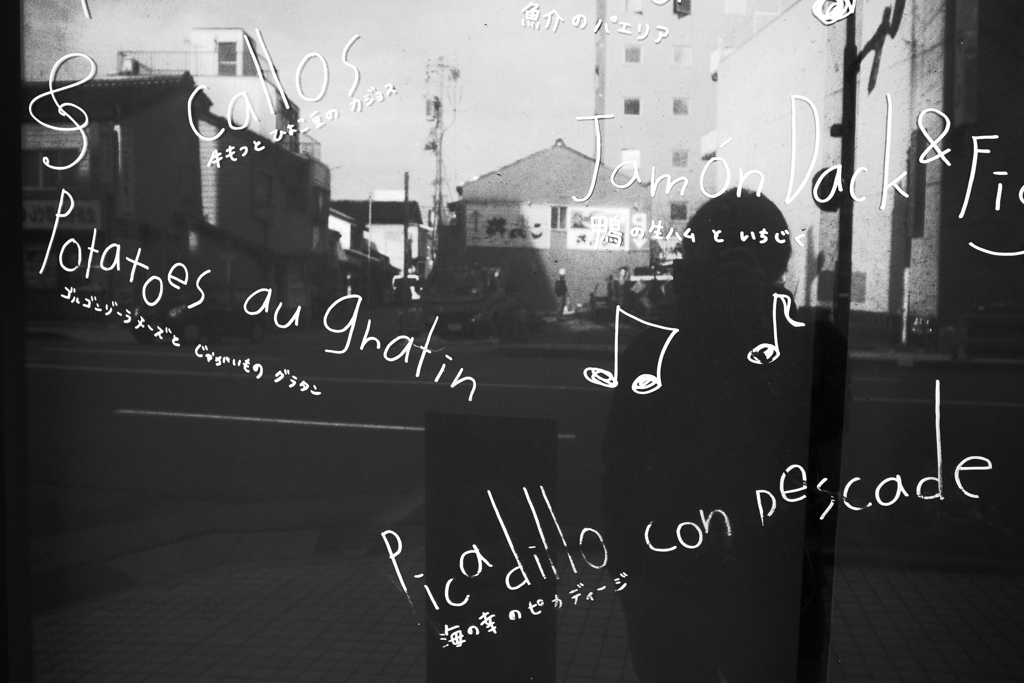 魚介のパエリア
callos
牛もつと ひよこ豆の カジョス
Jamón Dack & Fic
鴨の生ハム と いちじく
Potatoes au gratin
ゴルゴンゾーラチーズと じゃがいもの グラタン
Picadillo con pescade
海の幸のピカディージ